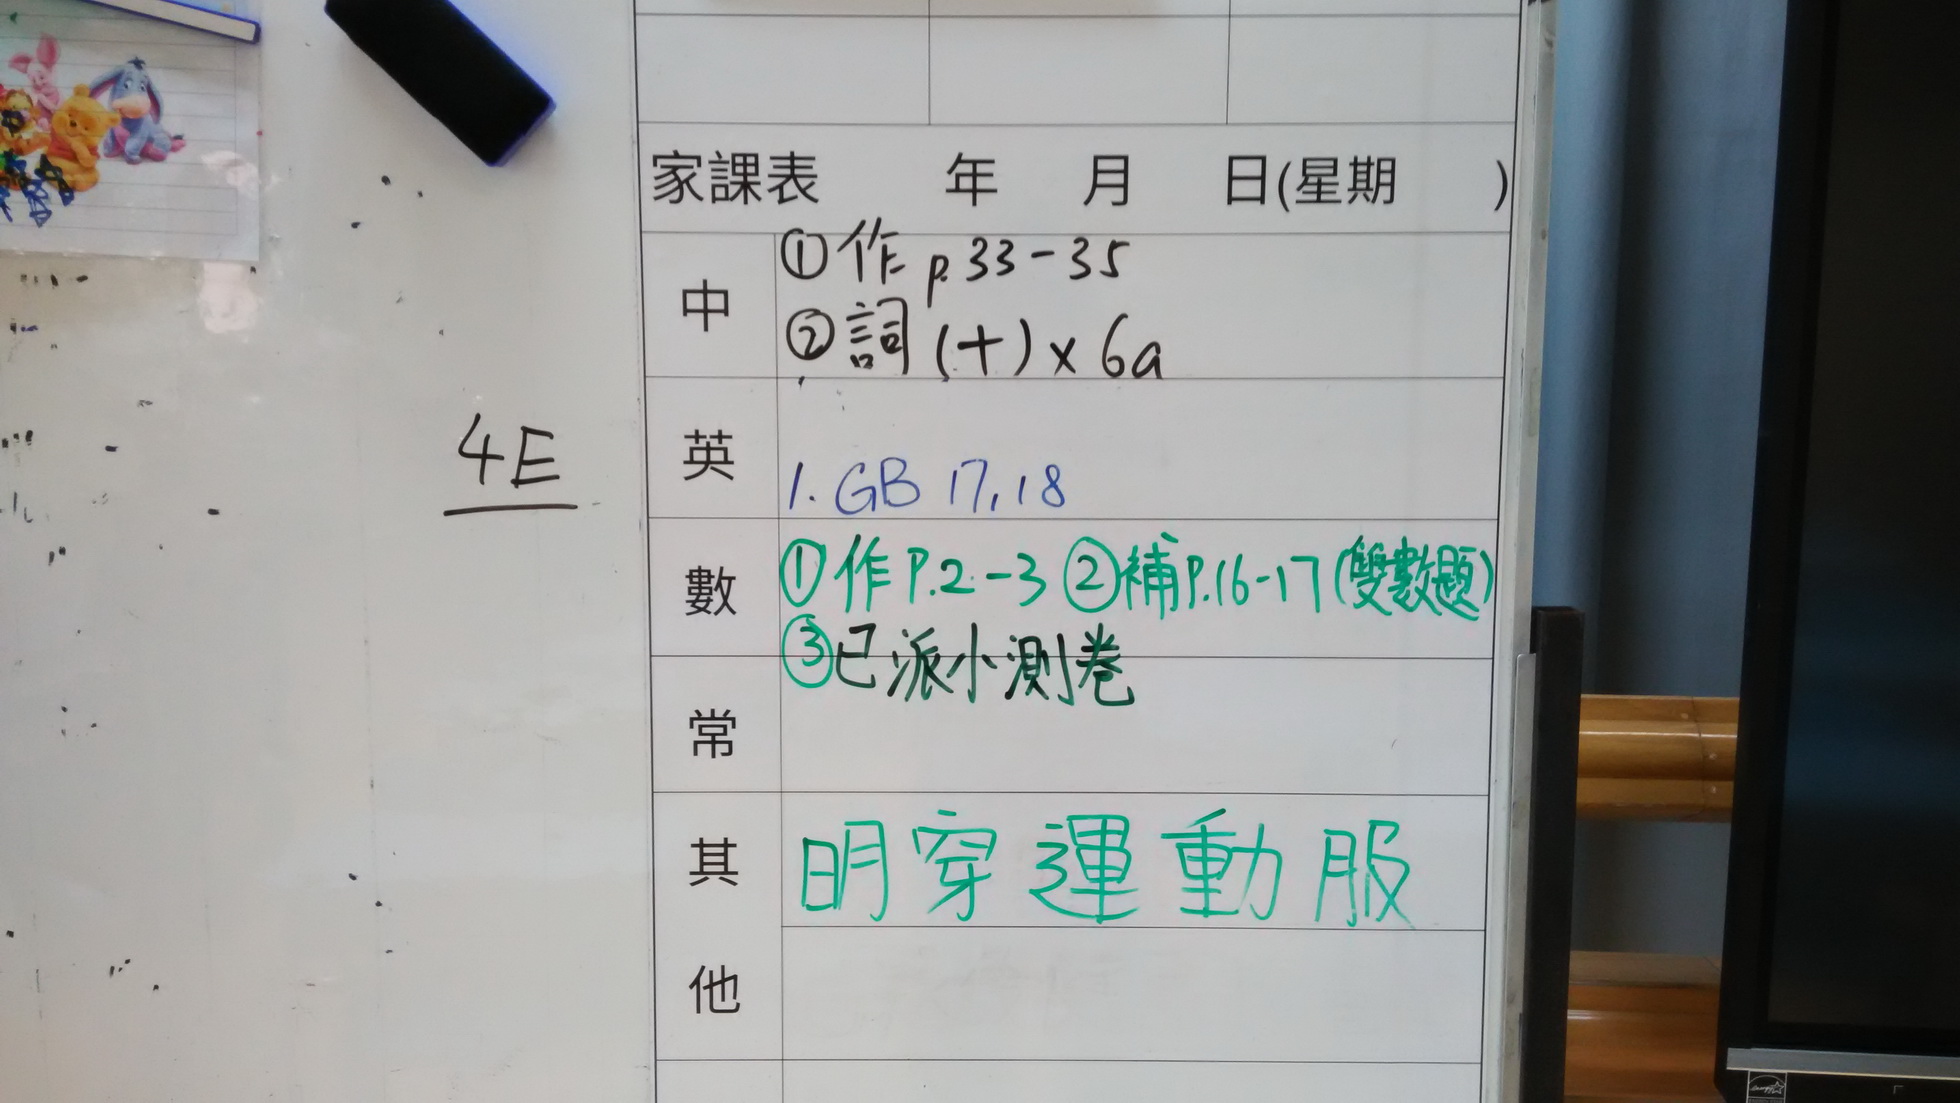 家課表 年 月 日(星期 )
中
①作 p.33-35
②詞(十)x 6a
4E
英
1. GB 17, 18
數
①作 P.2-3 ②補P.16-17(雙數題)
③已派小測卷
常
其他
明穿運動服